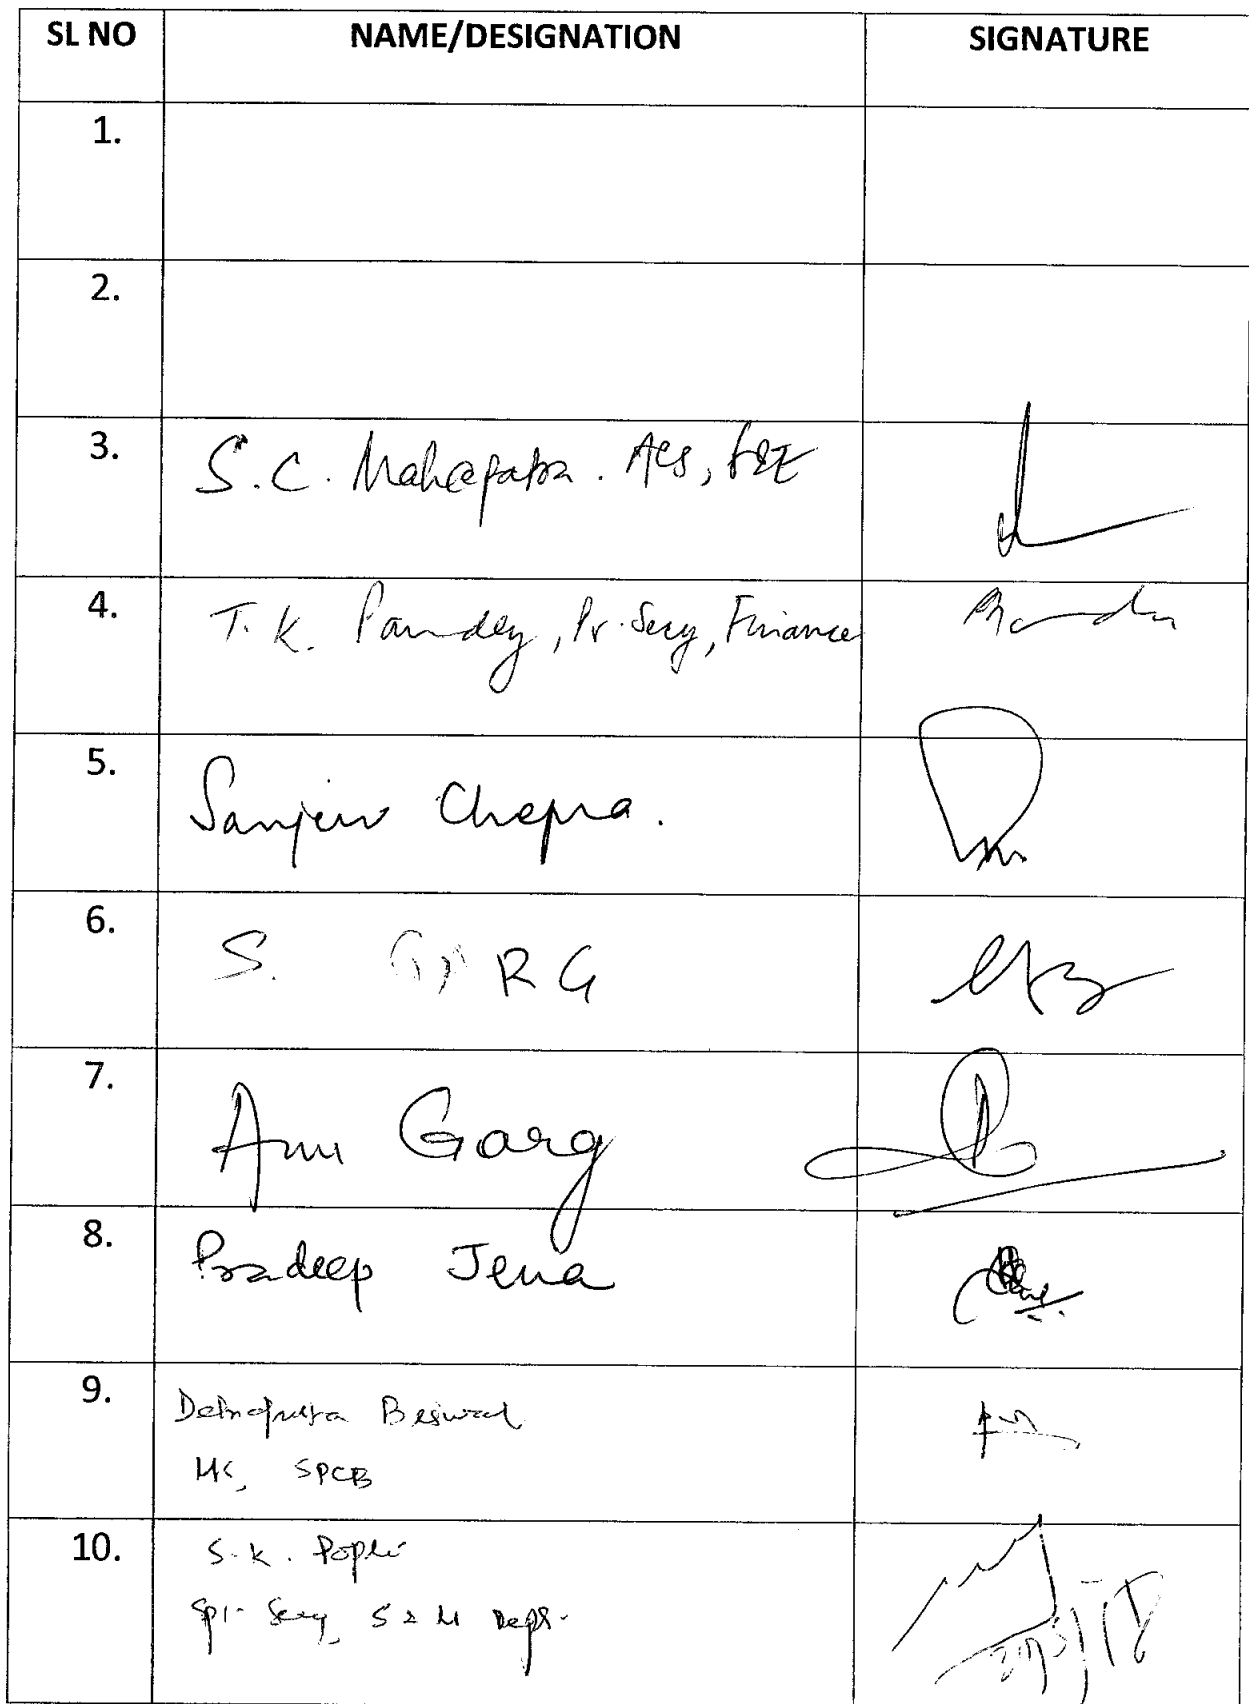 SL NO NAME/DESIGNATION SIGNATURE
1.
2.
3. S.C. Mahapatra. ACS, F&E
4. T.K. Pandey, Pr. Secy, Finance
5. Sanjeev Chopra.
6. S. GARG
7. Anu Garg
8. Pradeep Jena
9. Debapriya Biswal
MS, SPCB
10. S.K. Popli
Spl. Secy, S & M Dept.